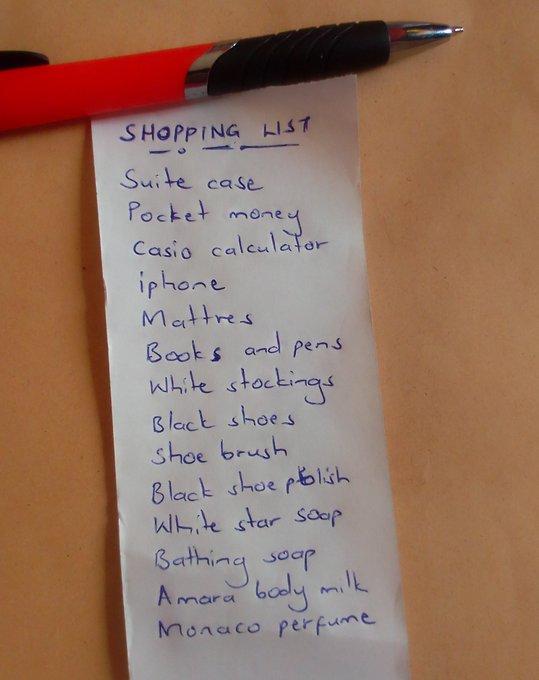 SHOPPING LIST
Suite case
Pocket money
Casio calculator
iphone
Mattres
Books and pens
White stockings
Black shoes
Shoe brush
Black shoe polish
White star soap
Bathing soap
Amara body milk
Monaco perfume